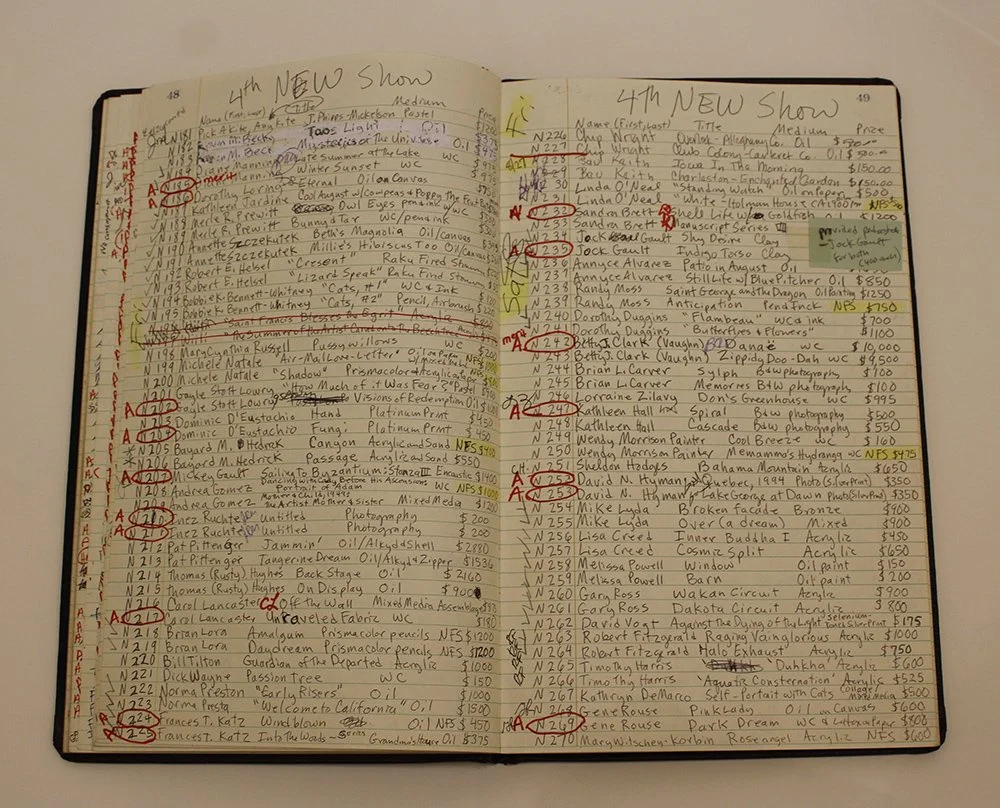 48
4th NEW Show
Name (First, Last) Title Medium Price
N181 Pick A Kite, Any Kite J. Phipps-Mickelson Pastel
N182 Kevin M. Beck Taos Light Oil
Kevin M. Beck Mysteries of the Universe Oil
Late Summer at the Lake WC
merit Winter Sunset WC
A N186 Dorothy Eternal Oil on Canvas
Kathleen Jardine Cool August w/Compeas & Poppy, The Feet
N188 Merle R. Prewitt Owl Eyes pen/ink w/WC
N189 Merle R. Prewitt Bunny d Tar WC/pen/ink
N190 Annette Szczekutek Beth's Magnolia Oil/Canvas
N191 Annette Szczekutek Millie's Hibiscus Too Oil/Canvas
N192 Robert E. Helsel "Cresent" Raku Fired
N193 Robert E. Helsel "Lizard Speak" Raku Fired
N194 Bobbie K. Bennett-Whitney "Cats, #1" WC & Ink
N195 Bobbie K. Bennett-Whitney "Cats, #2" Pencil, Airbrush
Fri "Saint Francis Blesses the Bigrit" Acrylic
N198 Mary Cynthia Russell Pussywillows WC $200
N199 Michele Natale "Air-Mail Love-Letter" Oil on Paper
N200 Michele Natale "Shadow" Prismacolor & Acrylic/paper
N201 Gayle Stott Lowry "How Much of it Was Fear?" Pastel
A N202 Gayle Stott Lowry Visions of Redemption Oil
N203 Dominic D'Eustachio Hand Platinum Print $450
A N204 Dominic D'Eustachio Fungi Platinum Print $450
N205 Bayard M. Hedrick Canyon Acrylic and Sand NFS $400
N206 Bayard M. Hedrick Passage Acrylic and Sand $550
A N207 Mickey Gault Sailing To Byzantium: Stanza III Encaustic $1400
N208 Andrea Gomez Dancing with Lady, Before His Ascensions WC NFS
Portrait of Adam
N209 Andrea Gomez The Artist Mother & Sister Mixed Media
A N210 Inez Ruchte Untitled Photography $200
A N211 Inez Ruchte Untitled Photography $200
N212 Pat Pittenger Jammin' Oil/Alkyd & Shell $2880
N213 Pat Pittenger Tangerine Dream Oil/Alkyd & Zipper $1536
N214 Thomas (Rusty) Hughes Back Stage Oil $2160
N215 Thomas (Rusty) Hughes On Display Oil $900
N216 Carol Lancaster CL Off The Wall Mixed Media Assemblage
A N217 Carol Lancaster Unraveled Fabric WC $180
N218 Brian Lora Amalgum Prismacolor pencils NFS $1200
N219 Brian Lora Daydream Prismacolor pencils NFS $1200
N220 Bill Tilton Guardian of the Departed Acrylic $1000
N221 Dick Wayne Passion Tree WC $150
N222 Norma Preston "Early Risers" Oil $1000
N223 Norma "Welcome to California" Oil $1500
A N224 Frances T. Katz Windblown Oil NFS $450
A N225 Frances T. Katz Into The Woods - Series Grandma's House Oil $375
49
4th NEW Show
Name (First, Last) Title Medium Price
Fri N226 Chip Wright Oil
N227 Chip Wright Club Colony-Cauleret Co Oil
N228 Bav Keith Iowa In The Morning $150.00
Bav Keith Charleston-Enchanted Garden $150.00
N230 Linda O'Neal "Standing Watch" Oil on paper $500
N231 Linda O'Neal "White-Holman House CA 1900" NFS
A N232 Sandra Brett Shell Life w/ Goldfish Oil $1200
N233 Sandra Brett Manuscript Series III
N234 Jock Gault Shy Desire Clay
A N235 Jock Gault Indigo Torso Clay
provided pedestal
- Jock Gault
for both
Sat
N236 Annyce Alvarez Patio in August Oil
N237 Annyce Alvarez Still Life w/ Blue Pitcher Oil $850
N238 Randy Moss Saint George and the Dragon Oil Painting $1250
N239 Randy Moss Anticipation Pen & Ink NFS $750
N240 Dorothy Duggins "Flambeau" WC & ink $700
N241 Dorothy Duggins "Butterflies & Flowers" $1100
merit A N242 Betty J. Clark (Vaughn) Danaë WC $10,000
N243 Betty J. Clark (Vaughn) Zippidy Doo-Dah WC $9,500
N244 Brian L. Carver Sylph B&W photography $100
N245 Brian L. Carver Memories B&W photography $100
N246 Lorraine Zilavy Don's Greenhouse WC $995
A N247 Kathleen Hall Spiral B&W photography $500
N248 Kathleen Hall Cascade B&W photography $550
N249 Wendy Morrison Painter Cool Breeze WC $160
N250 Wendy Morrison Painter Memamma's Hydranga WC NFS $475
CH. N251 Sheldon Hodges Bahama Mountain Acrylic $650
A N252 David N. Hyman Quebec, 1994 Photo (Silver Print) $350
A N253 David N. Hyman Lake George at Dawn Photo (Silver Print) $350
N254 Mike Lyda Broken facade Bronze $900
N255 Mike Lyda Over (a dream) Mixed $900
N256 Lisa Creed Inner Buddha I Acrylic $450
N257 Lisa Creed Cosmic Split Acrylic $650
N258 Melissa Powell Window Oil paint $150
N259 Melissa Powell Barn Oil paint $200
N260 Gary Ross Wakan Circuit Acrylic $900
N261 Gary Ross Dakota Circuit Acrylic $800
N262 David Voyt Against the Dying of the Light Selenium-Toned Silver Print $175
N263 Robert Fitzgerald Raging Vainglorious Acrylic $1000
N264 Robert Fitzgerald Halo Exhaust Acrylic $750
N265 Timothy Harris "Duhkha" Acrylic $600
N266 Timothy Harris "Aquatic Consternation" Acrylic $525
N267 Kathryn DeMarco Self-Portrait with Cats Collage Mixed Media $500
N268 Gene Rouse Pink Lady Oil on Canvas $600
A N269 Gene Rouse Park Dream WC & Latex on Paper $800
N270 Mary Witschey-Korbin Rose angel Acrylic NFS $600